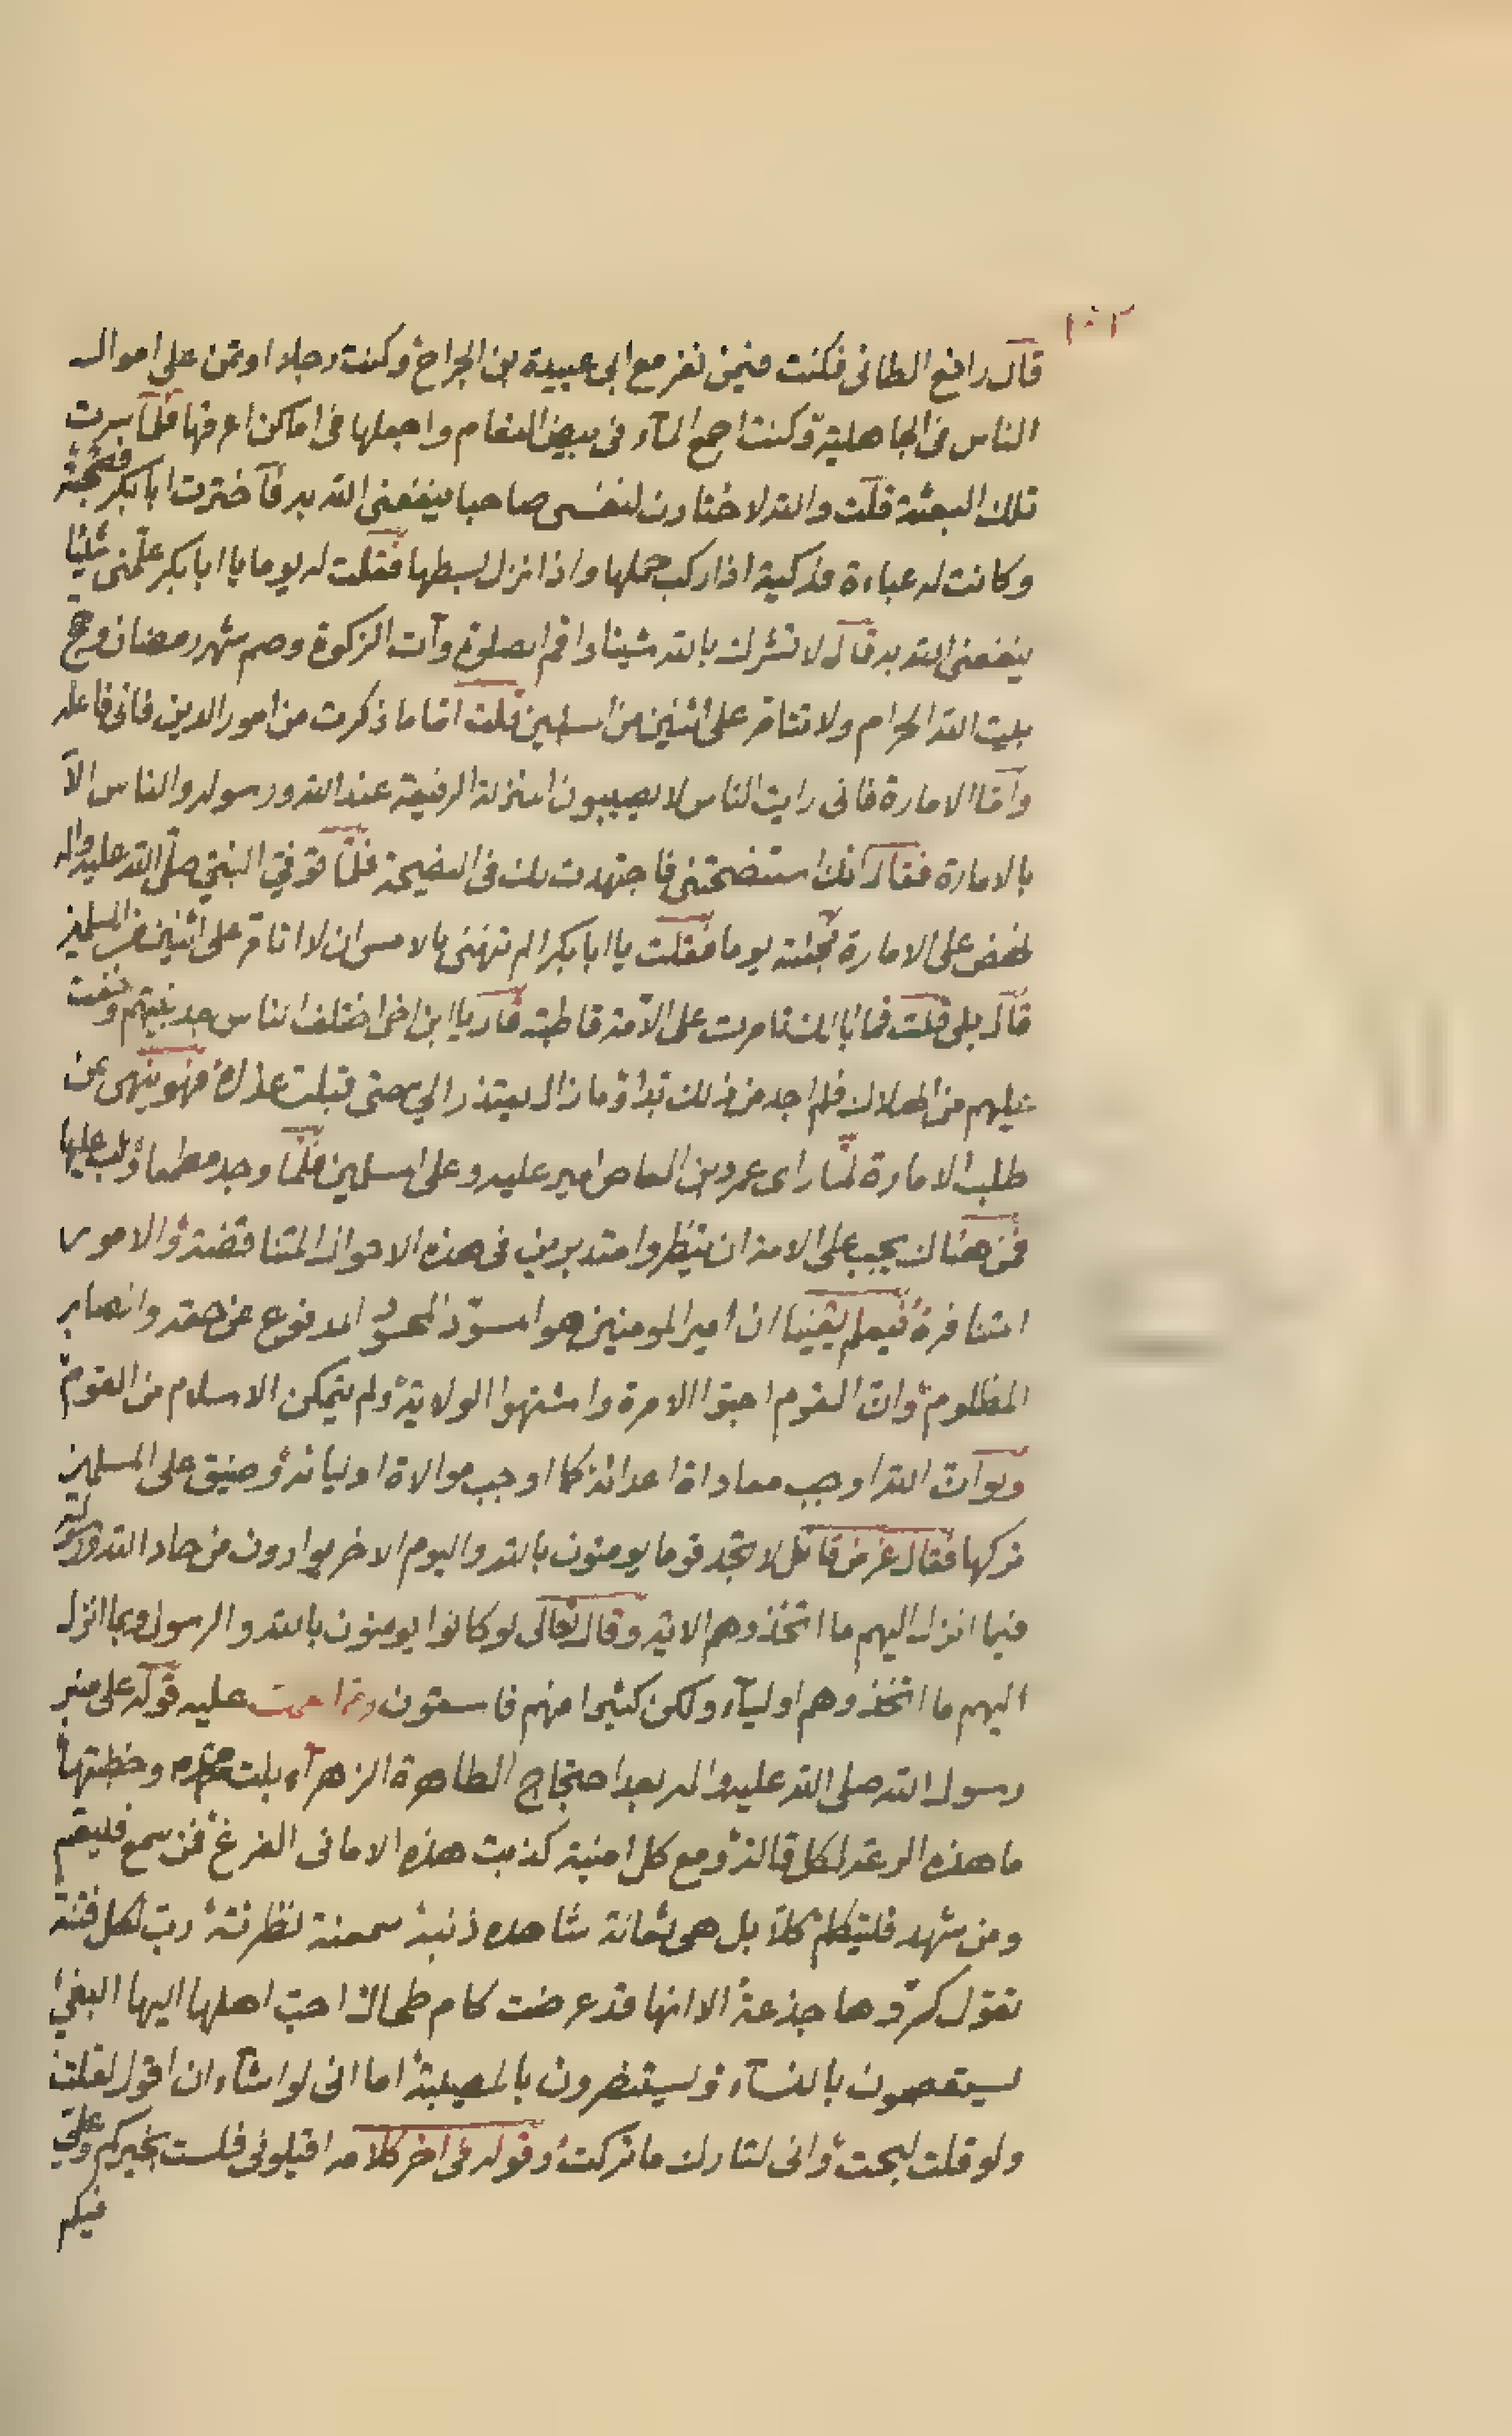 ١٠٢
قال رافع الطائى فكنت فيمن نفر مع ابى عبيدة بن الجراح وكنت رجلا اوتمن على اموال
الناس فى الجاهلية وكنت اجمع المآء فى بيض النعام واجعلها فى اماكن اعرفها فلما سرت
تلك البعثة قلت والله لاختارن لنفسى صاحبا ينفعنى الله به فآخترت ابا بكر فصحبته
وكانت له عباءة فدكية اذا ركب حملها واذا نزل بسطها فقلت له يوما يا ابا بكر علّمنى شيئا
ينفعنى الله به قال لا تشرك بالله شيئا واقم الصلوة وآت الزكوة وصم شهر رمضان وحج
بيت الله الحرام ولا تتامر على اثنين من المسلمين قلت امّا ما ذكرت من امور الدين فانى فاعله
وامّا الامارة فانى رايت الناس لا يصيبون المنزلة الرفيعة عند الله ورسوله والناس الّا
بالامارة فقال انك استنصحتنى فاجتهدت لك فى النصيحة فلمّا توفي النبيّ صلّى الله عليه واله
نهض على الامارة فجئته يوما فقلت يا ابا بكر الم تنهنى بالامس ان لا اتامّر على اثنين من المسلمين
قال بلى قلت فما بالك تامرت على الامّة قاطبة قال يا ابن اخى اختلف الناس بعد نبيّهم وخفت
عليهم من الهلاك فلم اجد من ذلك بدا وما زال يعتذر الي حتى قبلت عذره فهو ينهى عن
طلب الامارة لمّا راى عمرو بن العاص امير عليه وعلى المسلمين فلمّا وجد مطمعا وثب عليها
فمن هناك يجب على الامة ان ينظروا متدبرين فى هذه الاحوال المتناقضة والامور
المتنافرة فيعلم يقينا ان امير المومنين هو المحسود المدفوع عن حقه والصابر
المظلوم وانّ القوم احبّوا الامرة واشتهوا الولاية ولم يتمكن الاسلام من القوم
ولو ان الله اوجب معاداة اعدائه كما اوجب موالاة اوليائه وضيق على المسلمين
تركها فقال عز من قائل لا تجد قوما يومنون بالله واليوم الاخر يوادون من حاد الله ورسوله
فيما انزل اليهم ما اتخذوهم الاية وقال تعالى لو كانوا يومنون بالله والرسول وبما انزل
اليهم ما اتخذوهم اوليآء ولكن كثيرا منهم فاسقون عليه قوله على منبر
رسول الله صلى الله عليه واله بعد احتجاج الطاهرة الزهرآء بنت وخطبتها
ما هذه الرعة لكل قالة ومع كل امنية كذبت هذه الامانى الفرغ فمن سمع فليقم
ومن شهد فليتكلم كلّا بل هى ثعالة شاهده ذنبه رب لكل فتنة
تقول كرّوها جذعة الا انها قد عرضت كام طحال احبّ اهلها اليها البغى
يستعصون بالنسآء ويستنصرون بالمصيبة اما انى لو اشآء ان اقول لقلت
ولو قلت لبحت وانى لتارك ما تركت وقوله فى اخر كلامه اقيلونى فلست بخيركم وعلي
فيكم